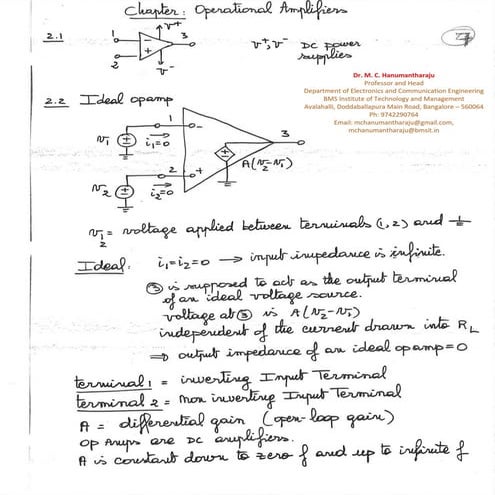 Chapter: Operational Amplifiers
2.1
1
2
3
V+
V-
V+, V- DC power
supplies
Dr. M. C. Hanumantharaju
Professor and Head
Department of Electronics and Communication Engineering
BMS Institute of Technology and Management
Avalahalli, Doddaballapura Main Road, Bangalore – 560064
Ph: 9742290764
Email: mchanumantharaju@gmail.com,
mchanumantharaju@bmsit.in
2.2 Ideal opamp
v1
i1=0
1
-
3
A(v2-v1)
v2
i2=0
2
+
v1 = voltage applied between terminals (1,2) and
2
Ideal: i1=i2=0 → input impedance is infinite.
③ is supposed to act as the output terminal
of an ideal voltage source.
voltage at ③ is A(v2-v1)
independent of the current drawn into RL
⇒ output impedance of an ideal opamp=0
terminal 1 = inverting Input Terminal
terminal 2 = non inverting Input Terminal
A = differential gain (open-loop gain)
Op Amps are DC amplifiers.
A is constant down to zero f and up to infinite f